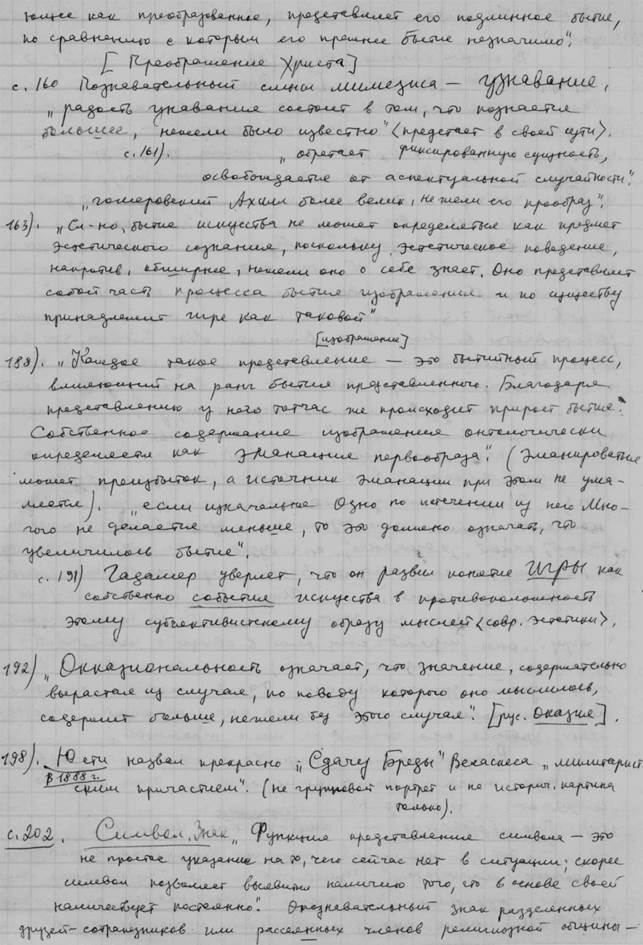 ющее как преобразованное, представляет его подлинное бытие,
по сравнению с которым его прежнее бытие незначимо".
[Преображение Христа]
с. 160 Познавательный смысл мимезиса — узнавание,
"радость узнавания состоит в том, что познается
большее, нежели было известно" <предстает в своей сути>.
с. 161). "обретает фиксированную сущность,
освобождается от аспектуальной случайности".
"гомеровский Ахилл более велик, нежели его прообраз".
163). "Сл-но, бытие искусства не может определяться как предмет
эстетического сознания, поскольку эстетическое поведение,
напротив, обширнее, нежели оно о себе знает. Оно представляет
собой часть процесса бытия изображения и по существу
принадлежит игре как таковой"
[изображение]
188). "Каждое такое представление — это бытийный процесс,
влияющий на ранг бытия представленного. Благодаря
представлению у него тотчас же происходит прирост бытия.
Собственное содержание изображения онтологически
определяется как эманация первообраза". (Эманировать
может преизбыток, а источник эманации при этом не ума-
ляется). "если изначальное Одно по истечении из него Мно-
гого не делается меньше, то это должно означать, что
увеличилось бытие".
с. 191) Гадамер уверяет, что он развил понятие ИГРЫ как
собственно события искусства в противоположность
этому субъективистскому образу мыслей <совр. эстетики>.
192) "Окказиональность означает, что значение, содержательно
вырастая из случая, по поводу которого оно мыслилось,
содержит больше, нежели без этого случая". [рус. Оказия].
198). Юсти назвал прекрасно "Сдачу Бреды" Веласкеса "милитарист
В 1888 г. ским причастием". (не групповой портрет и не историч. картина
только).
с. 202. Символ. Знак. "Функция представления символа — это
не простое указание на то, чего сейчас нет в ситуации; скорее
символ позволяет выявить наличие того, что в основе своей
наличествует постоянно". Опознавательный знак разделенных
друзей-сотрапезников или рассеянных членов религиозной общины —